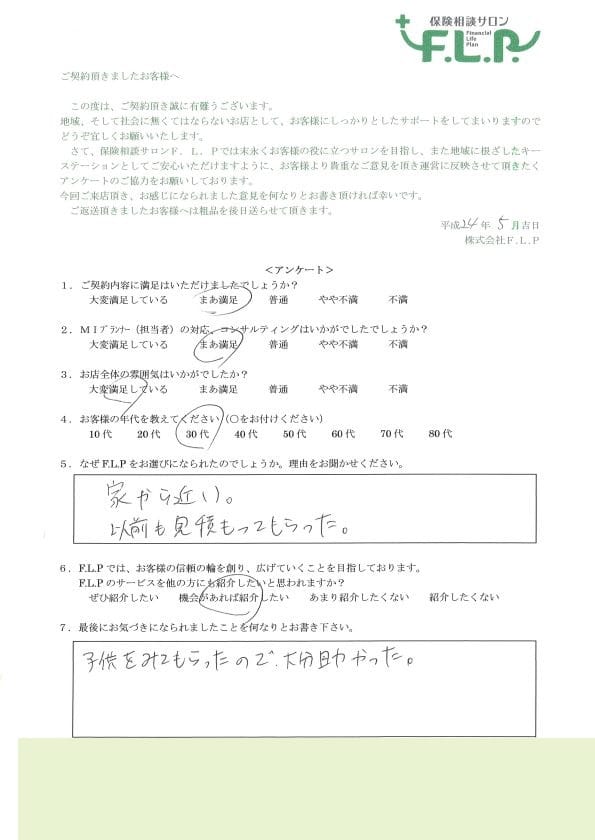 保険相談サロン
F.L.P.
Financial
Life
Plan
ご契約頂きましたお客様へ
この度は、ご契約頂き誠に有難うございます。
地域、そして社会に無くてはならないお店として、お客様にしっかりとしたサポートをしてまいりますので
どうぞ宜しくお願いいたします。
さて、保険相談サロンＦ．Ｌ．Ｐでは末永くお客様の役に立つサロンを目指し、また地域に根ざしたキー
ステーションとしてご安心いただけますように、お客様より貴重なご意見を頂き運営に反映させて頂きたく
アンケートのご協力をお願いしております。
今回ご来店頂き、お感じになられました意見を何なりとお書き頂ければ幸いです。
ご返送頂きましたお客様へは粗品を後日送らせて頂きます。
平成24年 5月吉日
株式会社Ｆ.Ｌ.Ｐ
＜アンケート＞
１．ご契約内容に満足はいただけましたでしょうか？
大変満足している　まあ満足　普通　やや不満　不満
２．ＭＩﾌﾟﾗﾝﾅｰ（担当者）の対応、コンサルティングはいかがでしたでしょうか？
大変満足している　まあ満足　普通　やや不満　不満
３．お店全体の雰囲気はいかがでしたか？
大変満足している　まあ満足　普通　やや不満　不満
４．お客様の年代を教えてください（○をお付けください）
10代　20代　30代　40代　50代　60代　70代　80代
５．なぜF.L.Pをお選びになられたのでしょうか。理由をお聞かせください。
家から近い。
以前も見積もってもらった。
６．F.L.Pでは、お客様の信頼の輪を創り、広げていくことを目指しております。
F.L.Pのサービスを他の方にも紹介したいと思われますか？
ぜひ紹介したい　機会があれば紹介したい　あまり紹介したくない　紹介したくない
７．最後にお気づきになられましたことを何なりとお書き下さい。
子供をみてもらったので、大分助かった。